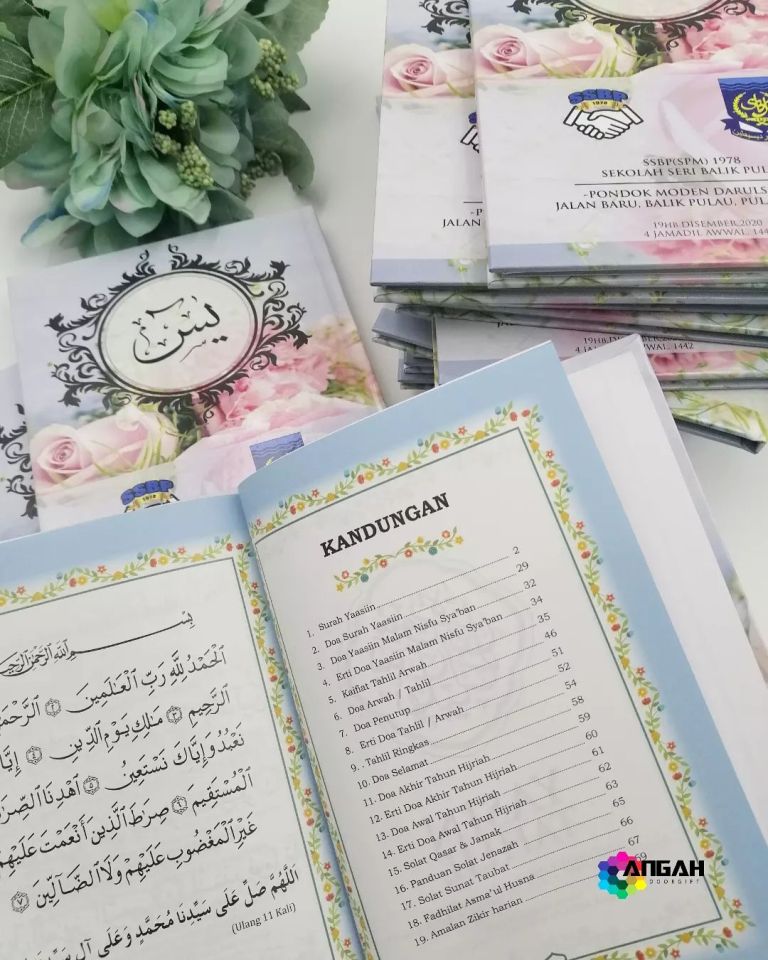 SSBP
1978
SSBP(SPM) 1978
SEKOLAH SERI BALIK PUL
-PONDOK MODEN DARULS
JALAN BARU, BALIK PULAU, PUL
19HB DISEMBER,2020
4 JAMADIL AWWAL, 144
-P
JALAN
19HB DISEMBER,2020
4 JAMADIL AWWAL, 1442
يس
SSBP
1978
KANDUNGAN
1. Surah Yaasiin 2
2. Doa Surah Yaasiin 29
3. Doa Yaasiin Malam Nisfu Sya'ban 32
4. Erti Doa Yaasiin Malam Nisfu Sya'ban 34
5. Kaifiat Tahlil Arwah 35
6. Doa Arwah / Tahlil 46
7. Doa Penutup 51
8. Erti Doa Tahlil / Arwah 52
9. Tahlil Ringkas 54
10. Doa Selamat 58
11. Doa Akhir Tahun Hijriah 59
12. Erti Doa Akhir Tahun Hijriah 60
13. Doa Awal Tahun Hijriah 61
14. Erti Doa Awal Tahun Hijriah 62
15. Solat Qasar & Jamak 63
16. Panduan Solat Jenazah 65
17. Solat Sunat Taubat 66
18. Fadhilat Asma'ul Husna 67
19. Amalan Zikir harian 69
بِسْمِ ٱللَّهِ ٱلرَّحْمَٰنِ ٱلرَّحِيمِ
ٱلْحَمْدُ لِلَّهِ رَبِّ ٱلْعَٰلَمِينَ ٢ ٱلرَّحْمَٰ
ٱلرَّحِيمِ ٣ مَٰلِكِ يَوْمِ ٱلدِّينِ ٤ إِيَّا
نَعْبُدُ وَإِيَّاكَ نَسْتَعِينُ ٥ ٱهْدِنَا ٱلصِّرَٰ
ٱلْمُسْتَقِيمَ ٦ صِرَٰطَ ٱلَّذِينَ أَنْعَمْتَ عَلَيْهِمْ
غَيْرِ ٱلْمَغْضُوبِ عَلَيْهِمْ وَلَا ٱلضَّآلِّينَ ٧
اَللَّهُمَّ صَلِّ عَلَى سَيِّدِنَا مُحَمَّدٍ وَعَلَى آلِ
(Ulang 11 Kali)
ANGAH
DOORGIFT